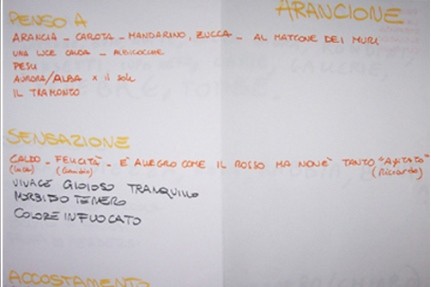 ARANCIONE
PENSO A
ARANCIA - CAROTA - MANDARINO, ZUCCA - AL MATTONE DEI MURI
UNA LUCE CALDA - ALBICOCCHE
PESCI
AURORA/ALBA x il sole
IL TRAMONTO
SENSAZIONE
CALDO - FELICITÀ - E' ALLEGRO COME IL ROSSO MA NON E' TANTO "AGITATO"
(Riccardo)
VIVACE GIOIOSO TRANQUILLO
MORBIDO TENERO
COLORE INFUOCATO
ACCOSTAMENTO